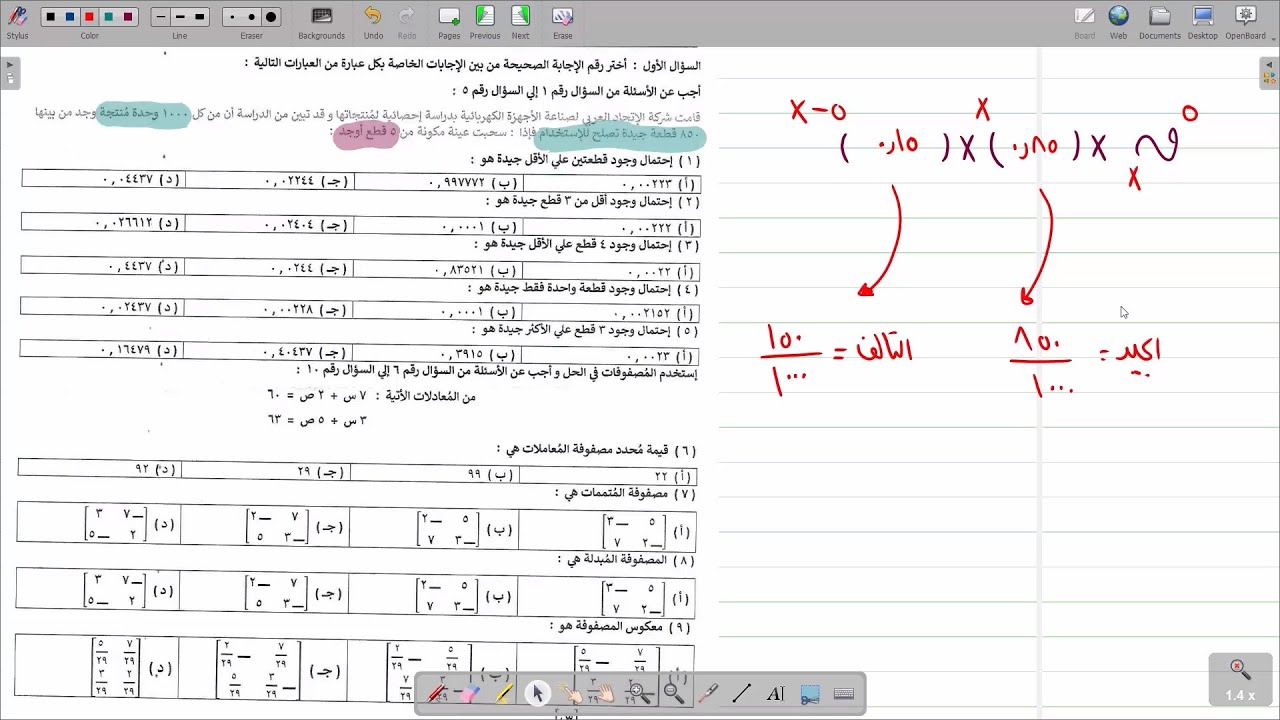 Stylus Color Line Eraser Backgrounds Undo Redo Pages Previous Next Erase Board Web Documents Desktop OpenBoard
السؤال الأول : أختر رقم الإجابة الصحيحة من بين الإجابات الخاصة بكل عبارة من العبارات التالية :
أجب عن الأسئلة من السؤال رقم ١ إلي السؤال رقم ٥ :
قامت شركة الإتحاد العربي لصناعة الأجهزة الكهربائية بدراسة إحصائية لمُنتجاتها و قد تبين من الدراسة أن من كل ١٠٠٠ وحدة مُنتجة وجد من بينها
٨٥٠ قطعة جيدة تصلح للإستخدام فإذا : سحبت عينة مكونة من ٥ قطع أوجد :
( ١ ) إحتمال وجود قطعتين علي الأقل جيدة هو :
(أ) ٠,٠٠٢٢٣ (ب) ٠,٩٩٧٧٧٢ (جـ) ٠,٠٢٢٤٤ (د) ٠,٠٤٤٣٧
( ٢ ) إحتمال وجود أقل من ٣ قطع جيدة هو :
(أ) ٠,٠٠٢٢٢ (ب) ٠,٠٠٠١ (جـ) ٠,٠٢٤٠٤ (د) ٠,٠٢٦٦١٢
( ٣ ) إحتمال وجود ٤ قطع علي الأقل جيدة هو :
(أ) ٠,٠٠٢٢ (ب) ٠,٨٣٥٢١ (جـ) ٠,٠٢٤٤ (د) ٠,٤٤٣٧
( ٤ ) إحتمال وجود قطعة واحدة فقط جيدة هو :
(أ) ٠,٠٠٢١٥٢ (ب) ٠,٠٠٠١ (جـ) ٠,٠٠٢٢٨ (د) ٠,٠٢٤٣٧
( ٥ ) إحتمال وجود ٣ قطع علي الأكثر جيدة هو :
(أ) ٠,٠٠٢٣ (ب) ٠,٣٩١٥ (جـ) ٠,٤٠٤٣٧ (د) ٠,١٦٤٧٩
إستخدم المُصفوفات في الحل و أجب عن الأسئلة من السؤال رقم ٦ إلي السؤال رقم ١٠ :
من المُعادلات الأتية : ٧ س + ٢ ص = ٦٠
٣ س + ٥ ص = ٦٣
( ٦ ) قيمة مُحدد مصفوفة المُعاملات هي :
(أ) ٢٢ (ب) ٩٩ (جـ) ٢٩ (د) ٩٢
( ٧ ) مصفوفة المُتممات هي :
(أ) ٥ –٣ (ب) ٥ –٢ (جـ) ٧ –٢ (د) –٧ ٣
–٢ ٧ –٣ ٧ –٣ ٥ ٢ –٥
( ٨ ) المصفوفة المُبدلة هي :
(أ) ٥ –٣ (ب) ٥ –٢ (جـ) ٧ –٢ (د) –٧ ٣
–٢ ٧ –٣ ٧ –٣ ٥ ٢ –٥
( ٩ ) معكوس المصفوفة هو :
٧/٢٩ – ٥/٢٩ ٥/٢٩ – ٢/٢٩ (جـ) ٧/٢٩ – ٢/٢٩ (د) ٧/٢٩ ٥/٢٩
– ٣/٢٩ ٥/٢٩ ٢/٢٩ ٣/٢٩
٥ X X-٥
( ٠,١٥ ) X ( ٠,٨٥ ) X ٥ ق X
الجيد = ٨٥٠/١٠٠٠
التالف = ١٥٠/١٠٠٠
1.4 x